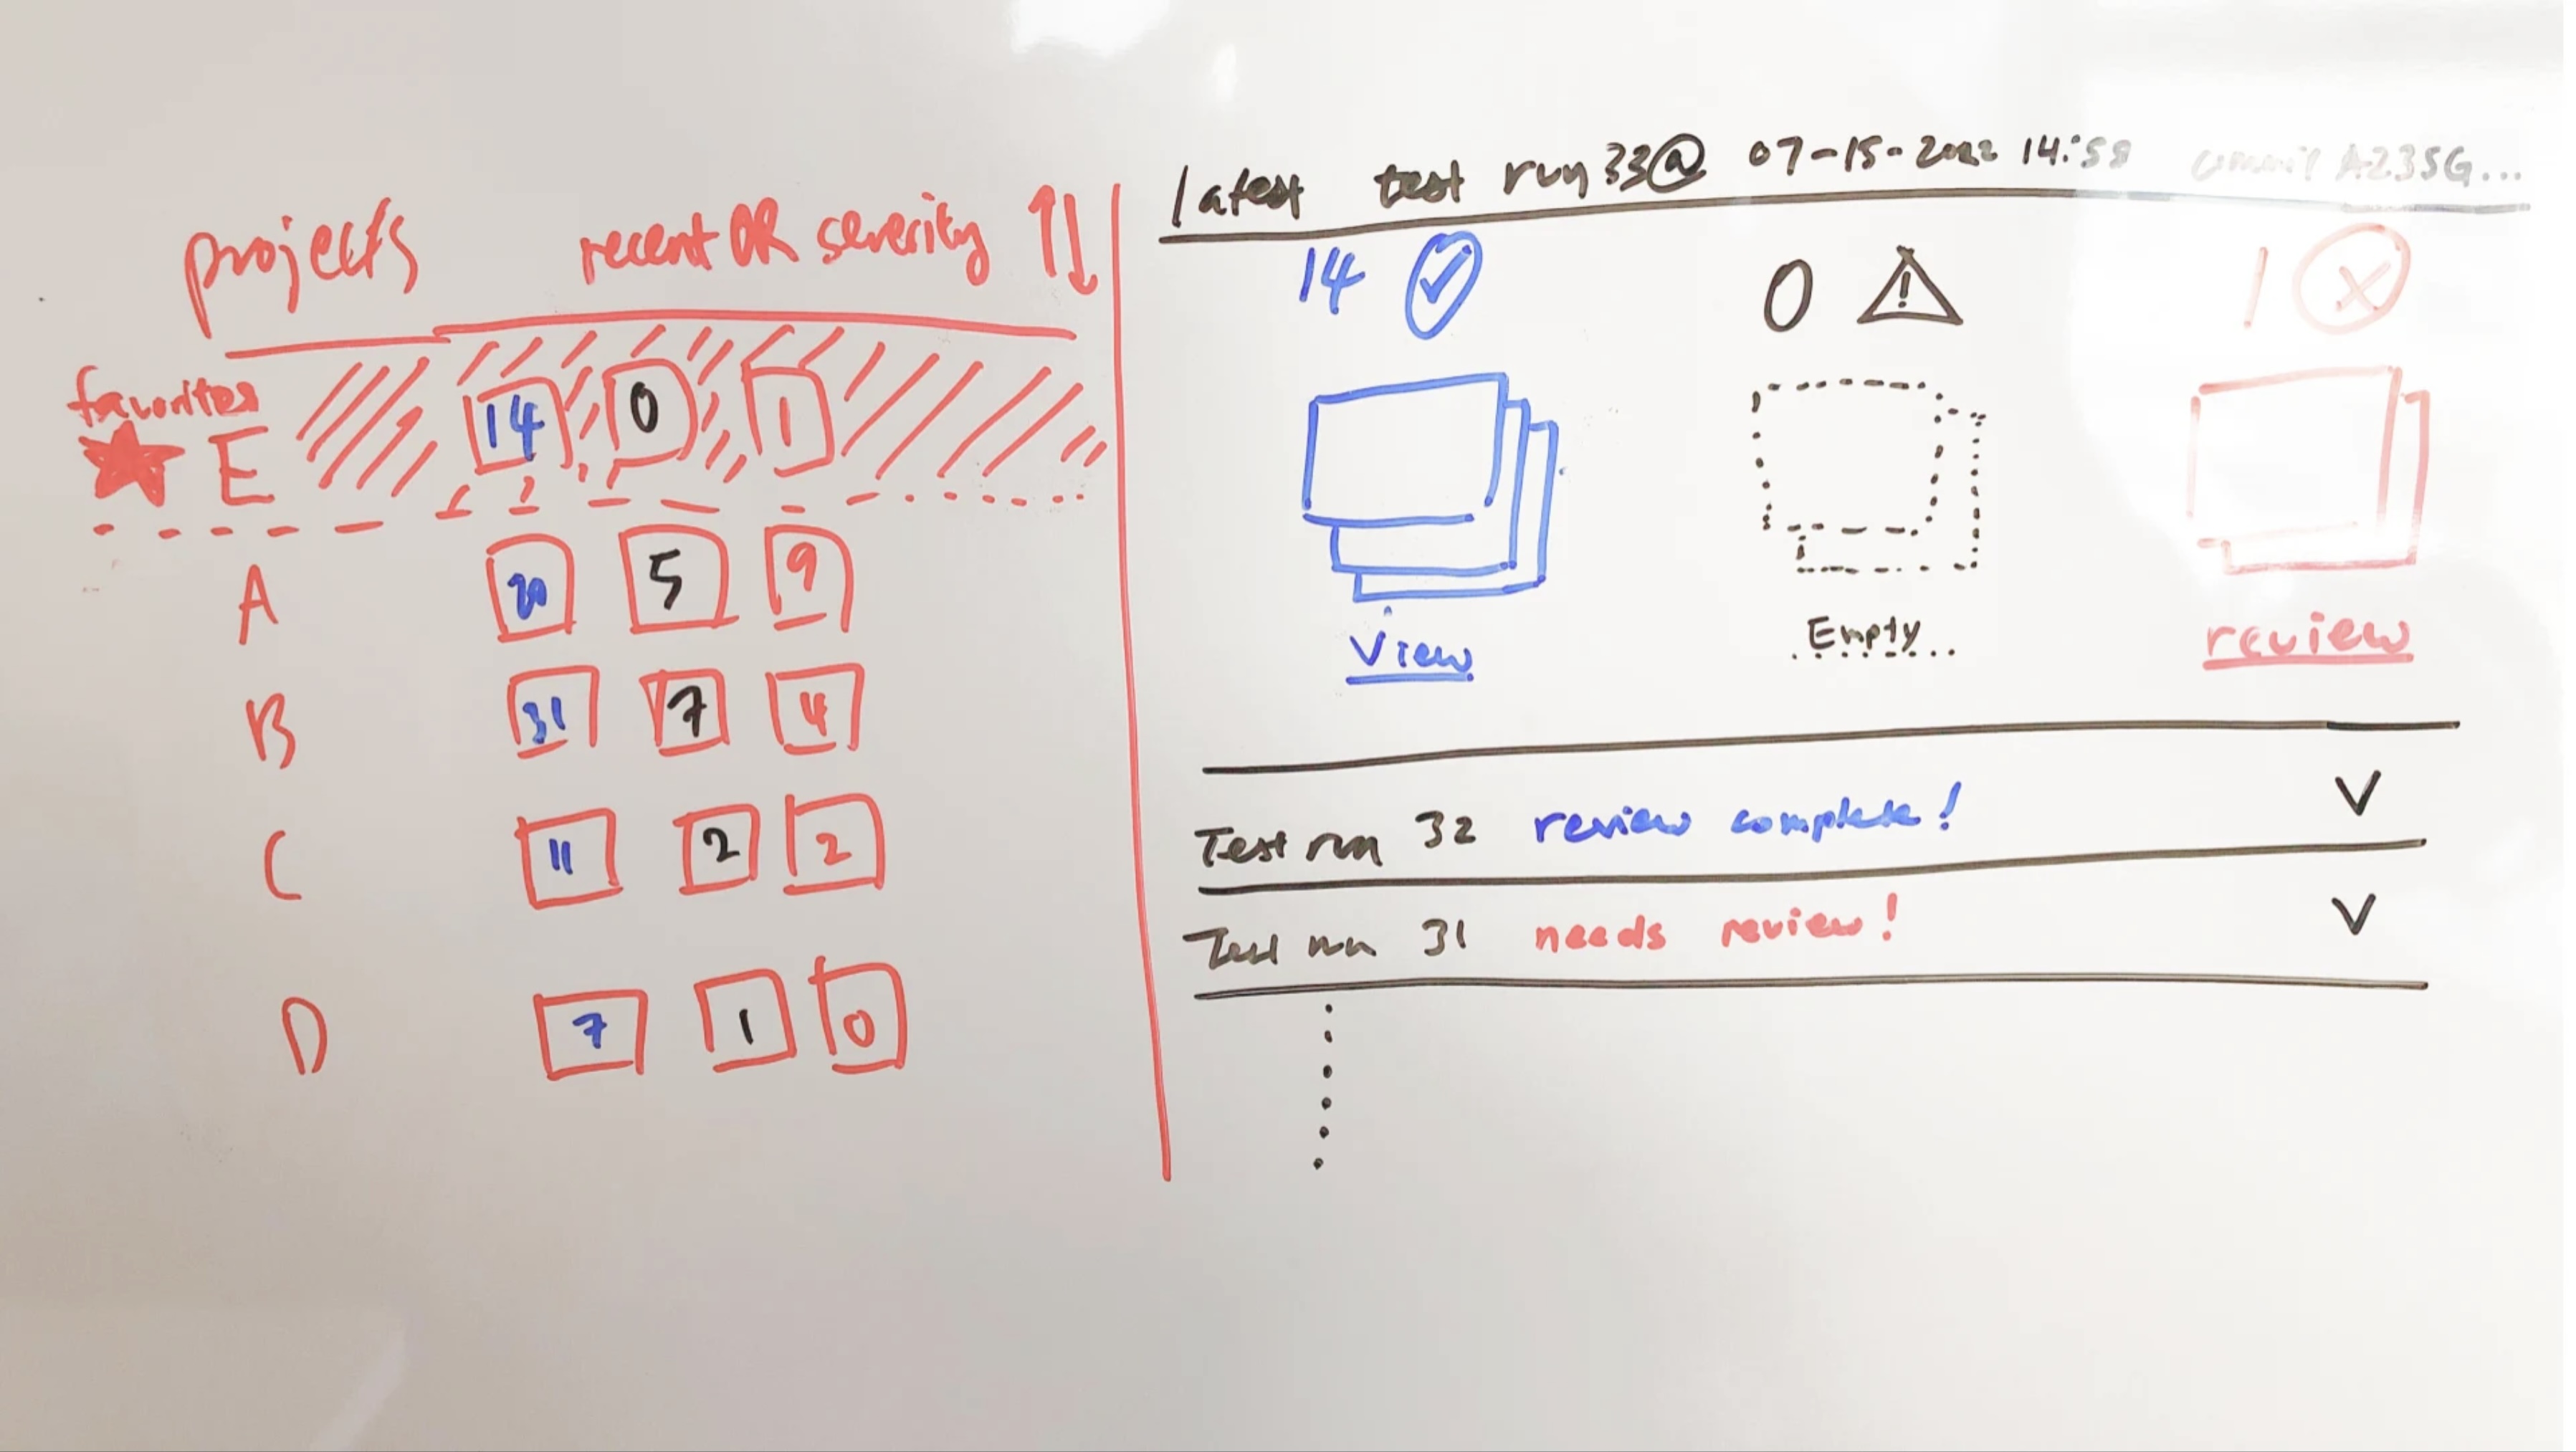 projects recent OR severity ↑↓
favorites
★ E 14 0 1
A 20 5 9
B 31 7 4
C 11 2 2
D 7 1 0
latest test run 33@ 07-15-2022 14:58 commit A235G...
14 ✓ 0 ! 1 x
View Empty review
Test run 32 review complete! V
Test run 31 needs review! V